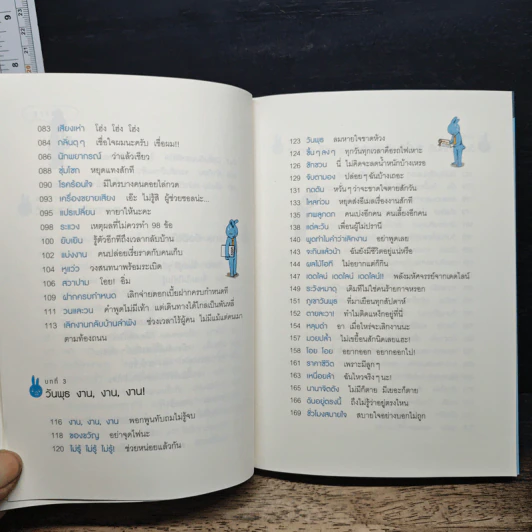 083 เสียงเห่า โฮ่ง โฮ่ง โฮ่ง
084 กลิ่นตุๆ เชื่อใจผมนะครับ เชื่อผม!!
086 นักพยากรณ์ ว่าแล้วเชียว
088 ซุ่มโชก หยุดแทงสักที
090 โรคร้อนใจ มีใครบางคนคอยไล่กวด
093 เครื่องขยายเสียง เอ๊ะ ไม่รู้สิ ผู้ช่วยซอลน่ะ...
095 แปรเปลี่ยน ทายาให้นะคะ
098 ระแวง เหตุผลที่ไม่ควรทำ 98 ข้อ
100 ยิบเย็บ รู้ตัวอีกทีถึงเวลากลับบ้าน
102 แบ่งงาน คนปล่อยเรี่ยราดกับคนเก็บ
104 หูแว่ว วงสนทนาพร้อมระเบิด
106 สวาปาม โอย! อิ่ม
109 ฝากครบกำหนด เลิกจ่ายดอกเบี้ยฝากครบกำหนดที
111 วนและวน คำพูดไม่มีเท้า แต่เดินทางได้ไกลเป็นพันลี้
113 เลิกงานกลับบ้านลำพัง ช่วงเวลาไร้ผู้คน ไม่มีแม้แต่คนเมา
ตามท้องถนน
บทที่ 3
วันพุธ งาน, งาน, งาน!
116 งาน, งาน, งาน พอกพูนทับถมไม่รู้จบ
118 ของขวัญ อย่าจุดไฟนะ
120 ไม่รู้ ไม่รู้ ไม่รู้! ช่วยหน่อยแล้วกัน
123 วันพุธ ลมหายใจขาดห้วง
124 ขึ้นๆ ลงๆ ทุกวันทุกเวลาคือรถไฟเหาะ
126 ชักชวน นี่ ไม่คิดจะลดน้ำหนักบ้างเหรอ
129 จับตามอง ปล่อยๆ ฉันบ้างเถอะ
131 กดดัน หวั่นๆ ว่าจะขาดใจตายสักวัน
133 ไหลท่วม หยุดส่งอีเมลเรื่องงานสักที
135 เกมลูกดอก คนแบ่งอีกคน คนเลี้ยงอีกคน
138 แต่ละวัน เพื่อนผู้ไม่ปรานี
140 พูดทำไมคำว่าเลิกงาน อย่าพูดเลย
143 จะกินแล้วน้า ฉันยังมีชีวิตอยู่แน่หรือ
144 ผลไม้โอที ไม่อยากแต่ก็กิน
147 เดดไลน์ เดดไลน์ เดดไลน์!! พลังมหัศจรรย์จากเดดไลน์
149 ระวังหมาดุ เดิมทีไม่ใช่คนร้ายกาจหรอก
151 ภูเขาวันพุธ ที่มาเยือนทุกสัปดาห์
152 ตายละวา! ทำไมติดแหง็กอยู่ที่นี่
154 หลุมดำ อา เมื่อไหร่จะเลิกงานนะ
157 มวยปล้ำ ไม่เขยื้อนสักนิดเลยแฮะ!
158 โอย โอย อยากออก อยากออกไป!
161 ราคาชีวิต เพราะมีลูกๆ
163 เหนื่อยล้า ฉันไหวจริงๆ นะ!
165 นานาจิตตัง ไม่มีก็ตาย มีเยอะก็ตาย
166 ฉันอยู่ตรงนี้ ถึงไม่รู้ว่าอยู่ตรงไหน
169 ชั่วโมงสบายใจ สบายใจอย่างบอกไม่ถูก